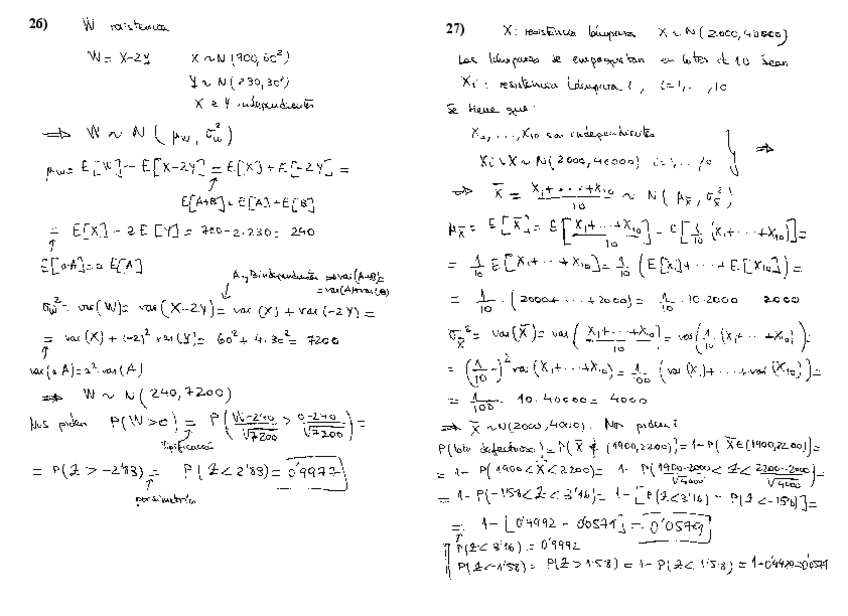 26) W resistencia
W = X-2Y X ~ N(700, 60²)
Y ~ N(230, 30²)
X e Y independientes
⇒ W ~ N( μw, σw² )
μw = E[W] = E[X-2Y] = E[X] + E[-2Y] =
E[A+B] = E[A]+E[B]
= E[X] - 2E[Y] = 700-2.230 = 240
E[aA]=a E[A]
A y B independientes ⇒ var(A+B)=
= var(A)+var(B)
σw² = var(W) = var(X-2Y) = var(X) + var(-2Y) =
= var(X) + (-2)² var(Y) = 60² + 4.30² = 7200
var(aA)=a² var(A)
⇒ W ~ N(240,7200)
Nos piden P(W>0) = P( W-240/√7200 > 0-240/√7200 ) =
tipificación
= P(Z > -2'83) = P(Z < 2'83) = 0'9977
por simetría
27) X: resistencia lámpara X ~ N(2000, 40000)
Las lámparas se empaquetan en lotes de 10 Sean
Xi: resistencia lámpara i, i=1,..,10
Se tiene que:
X1, ..., X10 son independientes
Xi ~ X ~ N(2000, 40000) i=1,..,10 ⇒
⇒ X̄ = X1+...+X10/10 ~ N( μX̄, σX̄² )
μX̄ = E[X̄] = E[ X1+...+X10/10 ] = E[ 1/10 (X1+...+X10) ] =
= 1/10 E[X1+...+X10] = 1/10 (E[X1]+...+E[X10]) =
= 1/10 . (2000+...+2000) = 1/10 . 10.2000 2000
σX̄² = var(X̄) = var( X1+...+X10/10 ) = var( 1/10 (X1+...+X10) ) =
= (1/10)² var(X1+...+X10) = 1/100 (var(X1)+...+var(X10)) =
= 1/100 . 10.40000 = 4000
⇒ X̄ ~ N(2000, 4000). Nos piden:
P(lote defectuoso) = P(X̄ ∉ (1900,2200)) = 1-P(X̄ ∈ (1900,2200)) =
= 1- P(1900 < X̄ < 2200) = 1- P( 1900-2000/√4000 < Z < 2200-2000/√4000 ) =
= 1- P(-1'58 < Z < 3'16) = 1- [P(Z<3'16) - P(Z<-1'58)] =
= 1- [0'9992 - 0'0571] = 0'0579
P(Z<3'16) = 0'9992
P(Z<-1'58) = P(Z>1'58) = 1- P(Z<1'58) = 1-0'9429=0'0571